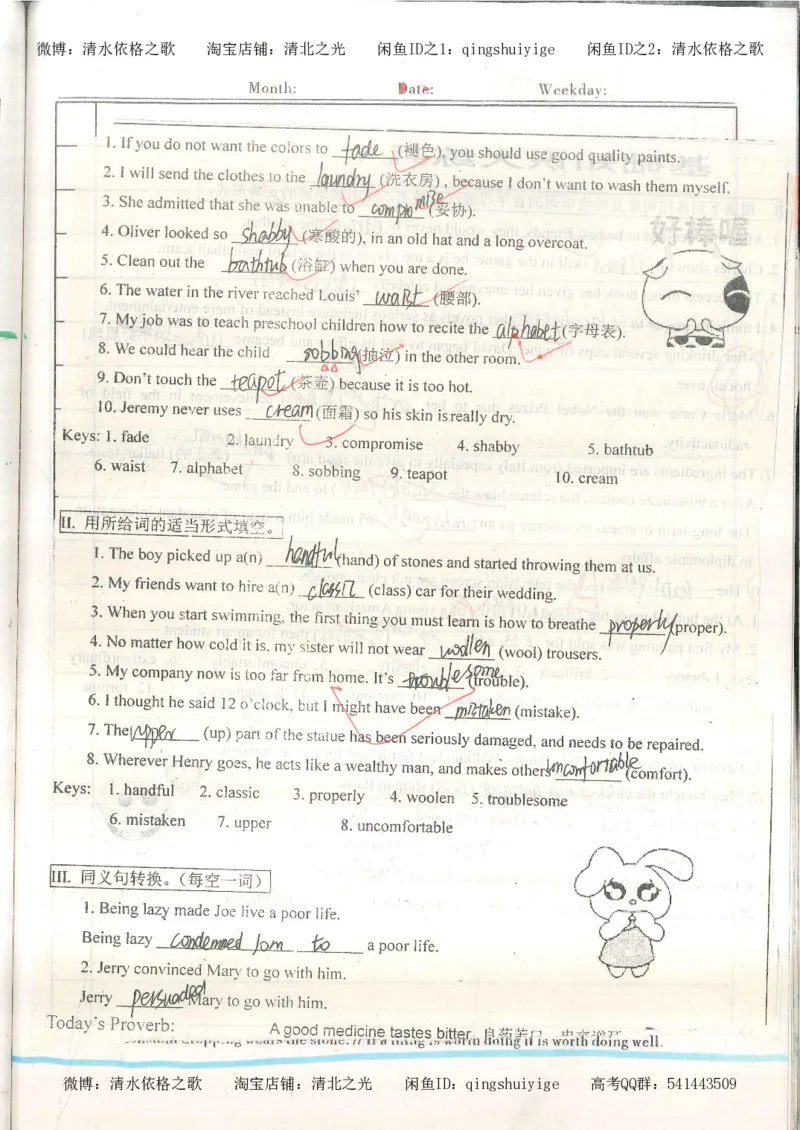 微博：清水依格之歌 淘宝店铺：清北之光 闲鱼ID之1：qingshuiyige 闲鱼ID之2：清水依格之歌
Month: Date: Weekday:
1. If you do not want the colors to fade (褪色), you should use good quality paints.
2. I will send the clothes to the laundry (洗衣房), because I don't want to wash them myself.
3. She admitted that she was unable to compromise (妥协).
4. Oliver looked so shabby (寒酸的), in an old hat and a long overcoat.
5. Clean out the bathtub (浴缸) when you are done.
6. The water in the river reached Louis' waist (腰部).
7. My job was to teach preschool children how to recite the alphabet (字母表).
8. We could hear the child sobbing (抽泣) in the other room.
9. Don't touch the teapot (茶壶) because it is too hot.
10. Jeremy never uses cream (面霜) so his skin is really dry.
Keys: 1. fade 2. laundry 3. compromise 4. shabby 5. bathtub
6. waist 7. alphabet 8. sobbing 9. teapot 10. cream
好棒喔
II. 用所给词的适当形式填空。
1. The boy picked up a(n) handful (hand) of stones and started throwing them at us.
2. My friends want to hire a(n) classic (class) car for their wedding.
3. When you start swimming, the first thing you must learn is how to breathe properly (proper).
4. No matter how cold it is, my sister will not wear woolen (wool) trousers.
5. My company now is too far from home. It's troublesome (trouble).
6. I thought he said 12 o'clock, but I might have been mistaken (mistake).
7. The upper (up) part of the statue has been seriously damaged, and needs to be repaired.
8. Wherever Henry goes, he acts like a wealthy man, and makes others uncomfortable (comfort).
Keys: 1. handful 2. classic 3. properly 4. woolen 5. troublesome
6. mistaken 7. upper 8. uncomfortable
III. 同义句转换。（每空一词）
1. Being lazy made Joe live a poor life.
Being lazy condemned to a poor life.
2. Jerry convinced Mary to go with him.
Jerry persuaded Mary to go with him.
Today's Proverb: A good medicine tastes bitter.
it is worth doing well.
微博：清水依格之歌 淘宝店铺：清北之光 闲鱼ID：qingshuiyige 高考QQ群：541443509